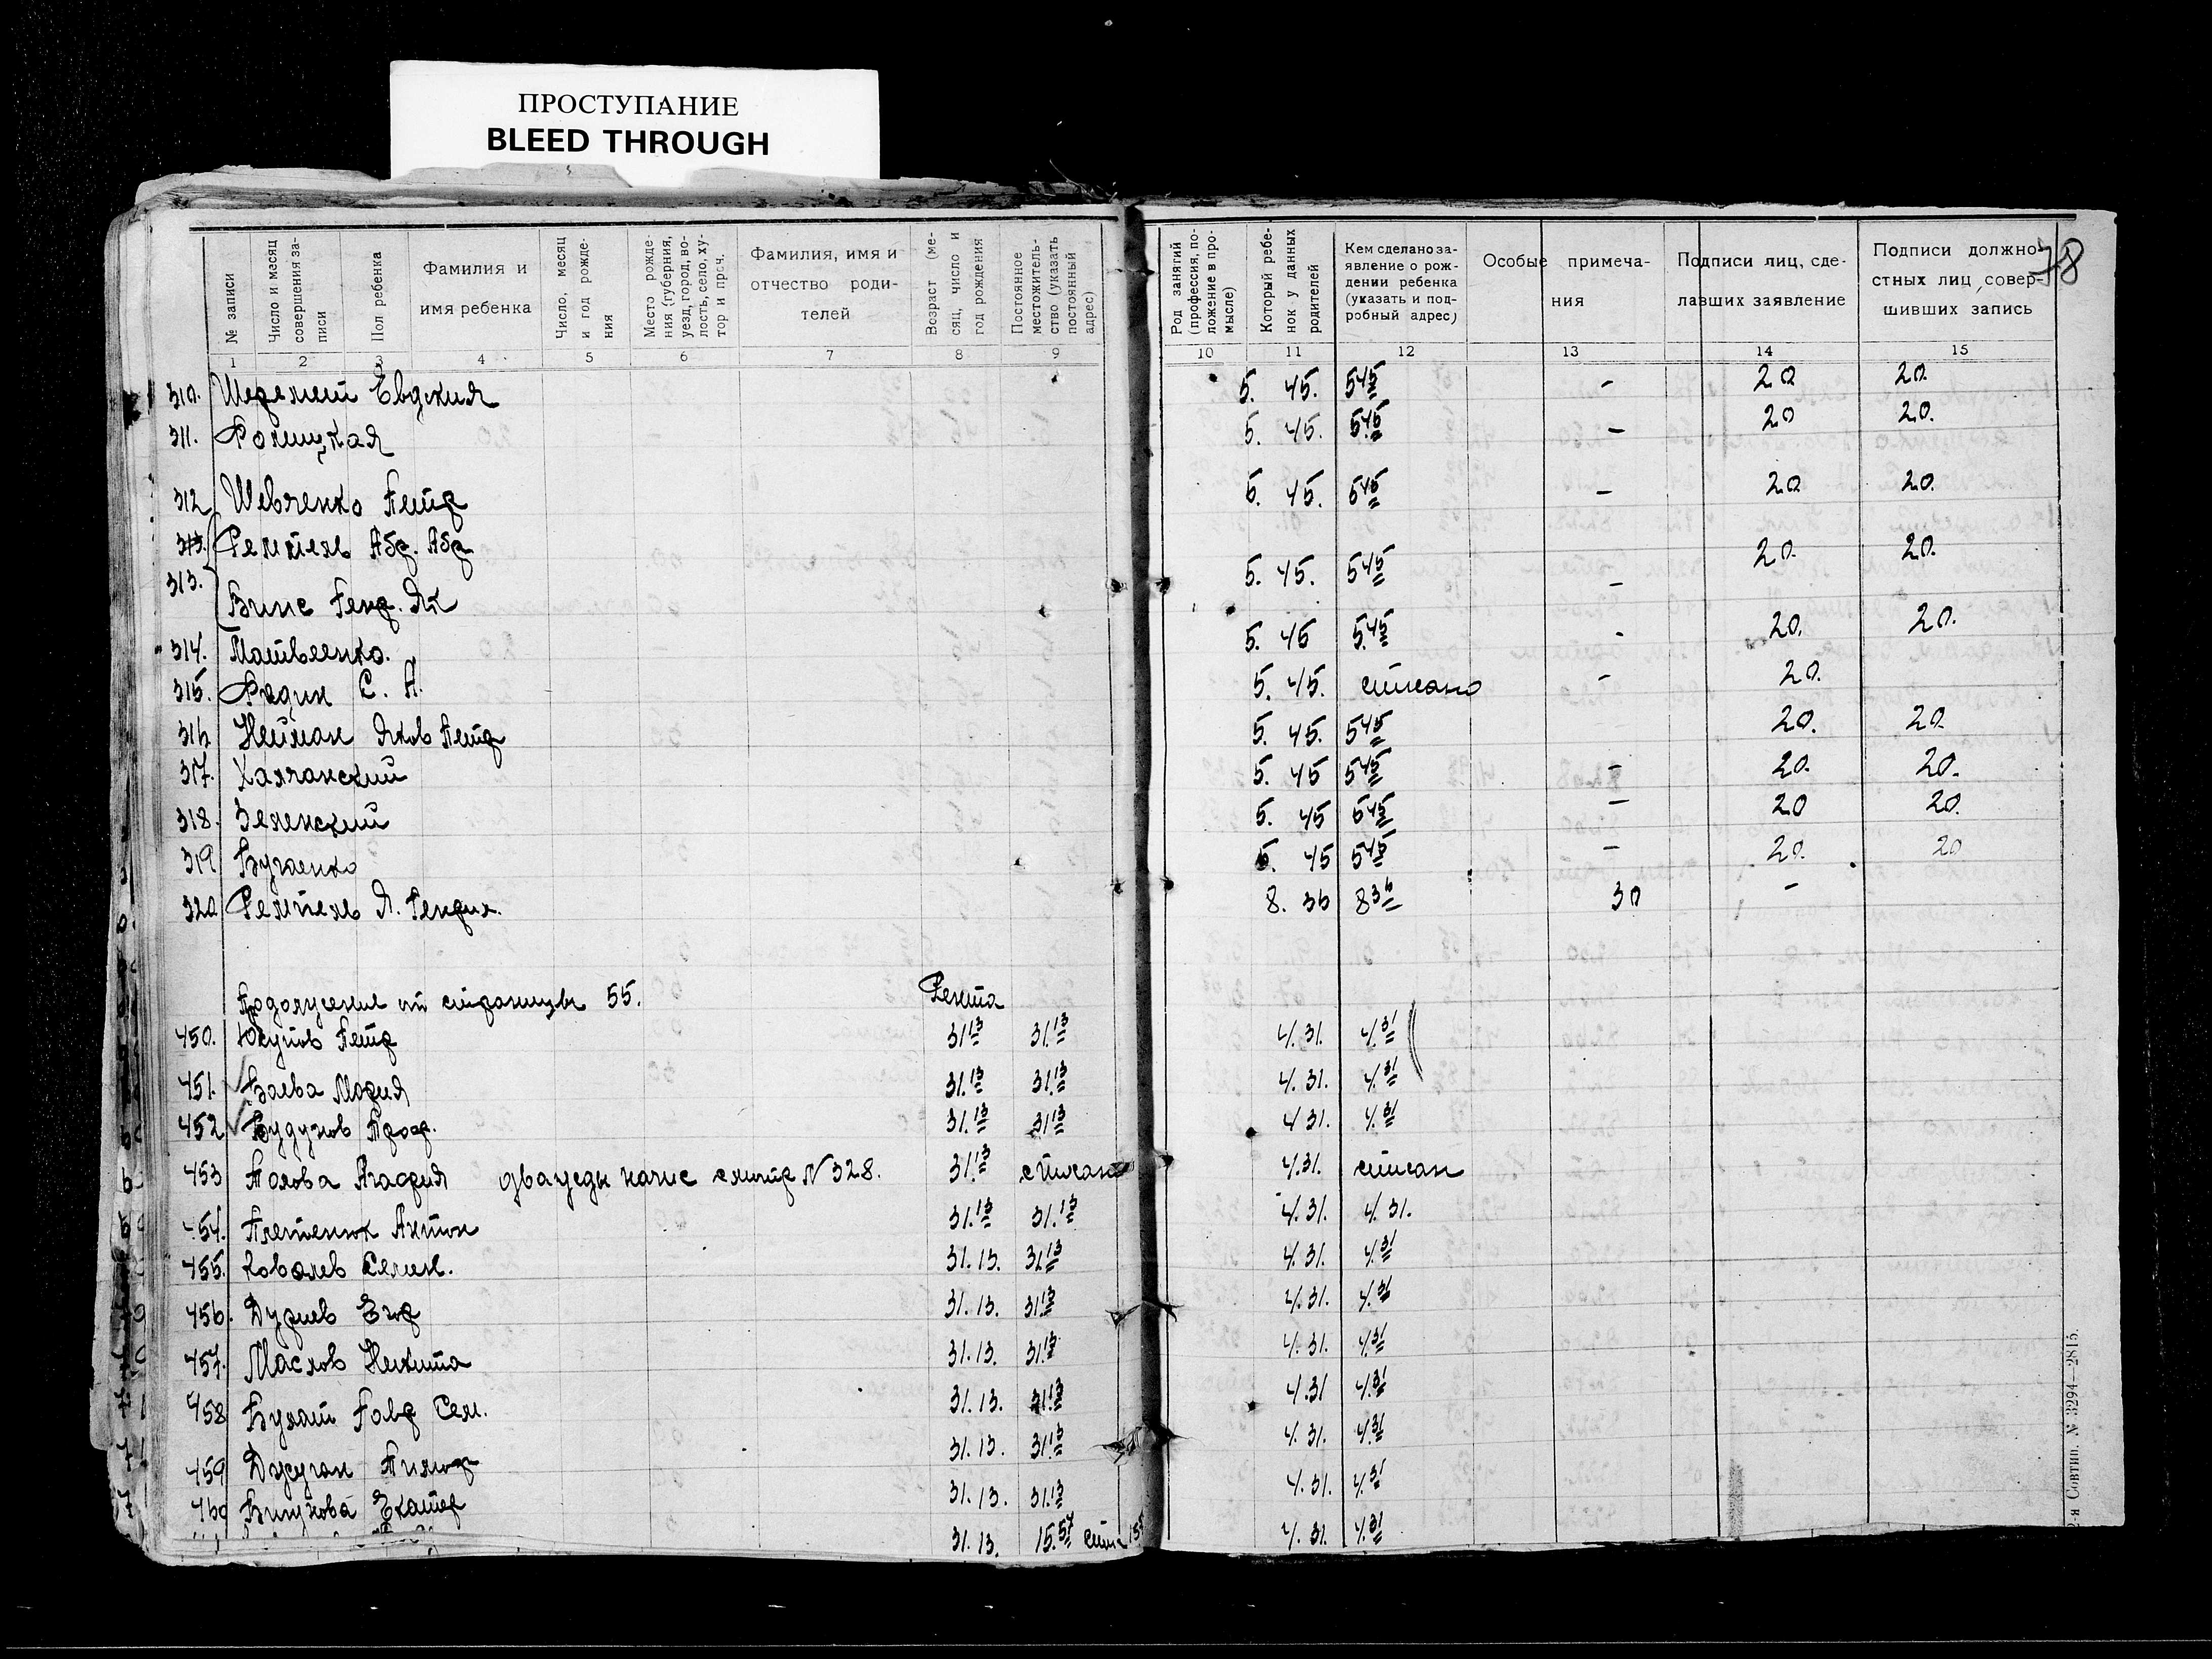 ПРОСТУПАНИЕ
BLEED THROUGH
78
№ записи
Число и месяц совершения записи
Пол ребенка
Фамилия и имя ребенка
Число, месяц и год рождения
Место рождения (губерния, уезд, город, волость, село, хутор и проч.
Фамилия, имя и отчество родителей
Возраст (месяц, число и год рождения
Постоянное местожительство (указать постоянный адрес)
Род занятий (профессия, положение в промысле)
Который ребенок у данных родителей
Кем сделано заявление о рождении ребенка (указать и подробный адрес)
Особые примечания
Подписи лиц, сделавших заявление
Подписи должностных лиц, совершивших запись
1 2 3 4 5 6 7 8 9 10 11 12 13 14 15
310. Шеремет Евдокия 5. 45. 545 - 20 20.
311. 5. 45. 545 - 20 20.
312 Шевченко Петр 5. 45. 545 - 20 20.
313. Ремпель Абр. Абр
313. Винс Генр. Як 5. 45. 545 - 20. 20.
314. Матвеенко. 5. 45 5.45 - 20. 20.
315. Редин С. А. 5. 45. списано - 20.
316 Нейман Яков Петр 5. 45. 545 20. 20.
317. Халчанский 5. 45 545 - 20. 20.
318. Зеленский 5. 45 545 - 20 20.
319 Бугаенко 5. 45 545 - 20. 20
320 Ремпель Я. Генрих. 8. 36 836 30 -
Продолжение от страницы 55. Рента
450. Юкупов Петр 31.13 31.13 4.31. 4.31
451. Баева Мария 31.13 31.13 4.31. 4.31
452 Будунов Прох. 31.13 31.13 4 31. 4.31
453 Полова Агафия дважды напис смотр N 328. 31.13 списано 4.31. списан
454. Плетенюк Антон 31.13 31.13 4.31. 4.31.
455. Ковалев Семен. 31.13. 31.13 4.31. 4.31
456. Дуриев Егор 31.13. 31.13 4.31. 4.31
457. Маслов Никита 31.13. 31.13 4.31. 4.31
458 Булат Гавр Сем. 31.13. 31.13 4.31 4.31
459 Джуган 31.13. 31.13 4.31. 4.31
460 Бигунова Екатер 31.13. 31.13 4.31. 4.31
31.13. 15.57 4.31. 4.31
2-я Совтип. № 3294—2815.